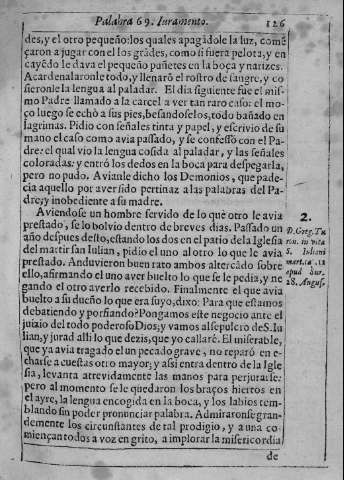 Palabra 69. Iuramento. 126
des, y el otro pequeño: los quales apagãdole la luz, comẽ
çaron a jugar con el los grãdes, como si fuera pelota, y en
cayẽdo le dava el pequeño puñetes en la boca y narizes.
Acardenalaronle todo, y llenarõ el rostro de sangre, y co
sieronle la lengua al paladar. El dia siguiente fue el mis-
mo Padre llamado a la carcel a ver tan raro caso: el mo-
ço luego se echò a sus pies, besandoselos, todo bañado en
lagrimas. Pidio con señales tinta y papel, y escrivio de su
mano el caso como avia passado, y se confessò con el Pa-
dre: el qual vio la lengua cosida al paladar, y las señales
coloradas: y entrò los dedos en la boca para despegarla,
pero no pudo. Avianle dicho los Demonios, que pade-
cia aquello por aver sido pertinaz a las palabras del Pa-
dre, y inobediente a su madre.
Aviendose un hombre servido de lo què otro le avia
prestado, se lo bolvio dentro de breves dias. Passado un
año despues desto, estando los dos en el patio de la Iglesia
del martir san Iulian, pidio el uno al otro lo que le avia
prestado. Anduvieron buen rato ambos altercãdo sobre
ello, afirmando el uno aver buelto lo que se le pedia, y ne
gando el otro averlo recebido. Finalmente el que avia
buelto a su dueño lo que era suyo, dixo: Para que estamos
debatiendo y porfiando? Pongamos este negocio ante el
juizio del todo poderoso Dios; y vamos al sepulcro de S. Iu
lian, y jurad alli lo que dezis, que yo callarè. El miserable,
que ya avia tragado el un pecado grave, no reparò en e-
charse a cuestas otro mayor; y assi entra dentro de la Igle
sia, levanta atrevidamente las manos para perjurarse:
pero al momento se le quedaron los braços hiertos en
el ayre, la lengua encogida en la boca, y los labios tem-
blando sin poder pronunciar palabra. Admiraronse gran-
demente los circunstantes de tal prodigio, y a una co-
miençan todos a voz en grito, a implorar la misericordia
de
2.
D. Greg. Tu
ron. in vita
S. Iuliani
mart. c.
apud Sur.
28. Augus.